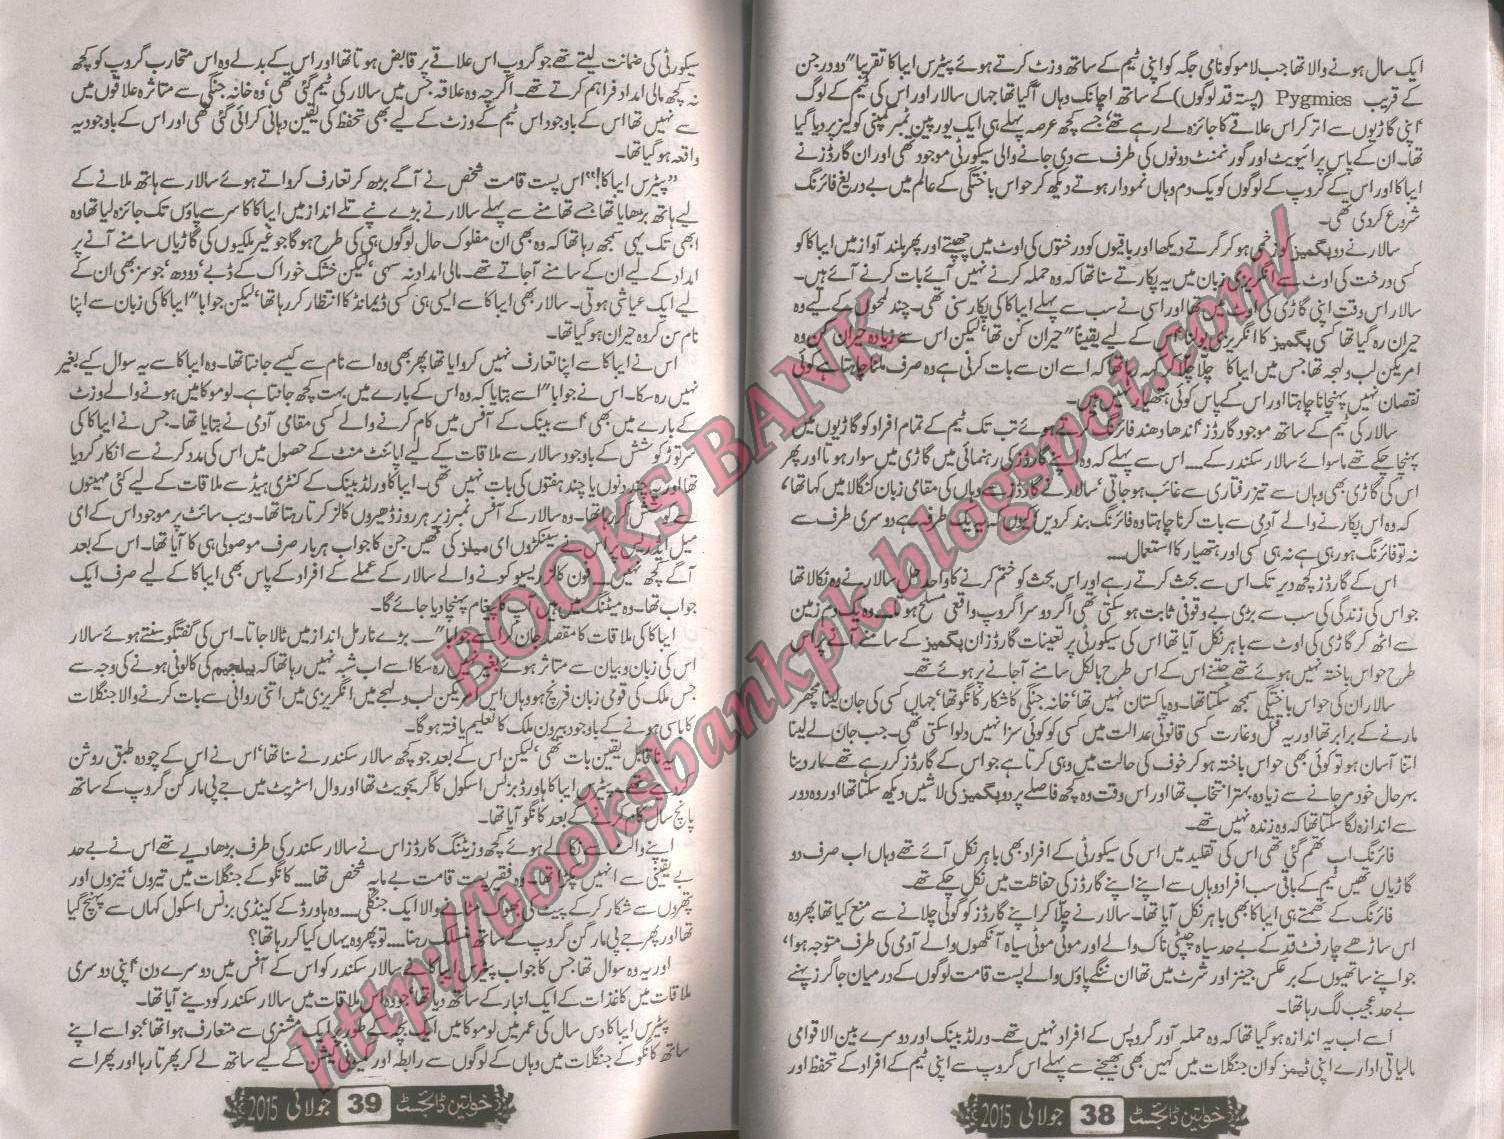 ایک سال ہونے والا تھا جب لاموکو نامی جگہ کو اپنی ٹیم کے ساتھ وزٹ کرتے ہوئے پیٹرس ایباکا تقریباً" دو درجن
کے قریب Pygmies (پستہ قد لوگوں) کے ساتھ اچانک وہاں آگیا تھا جہاں سالار اور اس کی ٹیم کے لوگ
اپنی گاڑیوں سے اتر کر اس علاقے کا جائزہ لے رہے تھے' جسے کچھ عرصہ پہلے ہی ایک یورپین ٹمبر کمپنی کو لیز پر دیا گیا
تھا۔ ان کے پاس پرائیویٹ اور گورنمنٹ دونوں کی طرف سے دی جانے والی سیکورٹی موجود تھی اور ان گارڈز نے
ایباکا اور اس کے گروپ کے لوگوں کو یک دم وہاں نمودار ہوتے دیکھ کر حواس باختگی کے عالم میں بے دریغ فائرنگ
شروع کردی تھی۔
سالار نے دو پگمیز کو زخمی ہو کر گرتے دیکھا اور باقیوں کو درختوں کی اوٹ میں چھپتے اور پھر بلند آواز میں ایباکا کو
کسی درخت کی اوٹ سے انگریزی زبان میں یہ پکارتے سنا تھا کہ وہ حملہ کرنے نہیں آئے بات کرنے آئے ہیں۔
سالار اس وقت اپنی گاڑی کی اوٹ میں تھا اور اسی نے سب سے پہلے ایباکا کی پکار سنی تھی۔ چند لمحوں کے لیے وہ
حیران رہ گیا تھا کسی پگمیز کا انگریزی بولنا اس کے لیے یقیناً" حیران کن تھا' لیکن اس سے زیادہ حیران کن وہ
امریکن لب ولہجہ تھا جس میں ایباکا چلا چلا کر کہہ رہا تھا کہ اسے ان سے بات کرنی ہے وہ صرف ملنا چاہتا ہے کوئی
نقصان نہیں پہنچانا چاہتا اور اس کے پاس کوئی ہتھیار نہیں ہیں۔
سالار کی ٹیم کے ساتھ موجود گارڈز اندھا دھند فائرنگ کرتے ہوئے تب تک ٹیم کے تمام افراد کو گاڑیوں میں
پہنچا چکے تھے ماسوائے سالار سکندر کے.... اس سے پہلے کہ وہ اپنے گارڈز کی رہنمائی میں گاڑی میں سوار ہوتا اور پھر
اس کی گاڑی بھی وہاں سے تیز رفتاری سے غائب ہو جاتی' سالار نے گارڈز سے وہاں کی مقامی زبان لنگالا میں کہا تھا'
کہ وہ اس پکارنے والے آدمی سے بات کرنا چاہتا وہ فائرنگ بند کر دیں کیوں کہ یہ یک طرفہ ہے دوسری طرف سے
نہ تو فائرنگ ہو رہی ہے نہ ہی کسی اور ہتھیار کا استعمال....
اس کے گارڈز کچھ دیر تک اس سے بحث کرتے رہے اور اس بحث کو ختم کرنے کا واحد حل سالار نے وہ نکالا تھا
جو اس کی زندگی کی سب سے بڑی بے وقوفی ثابت ہو سکتی تھی اگر دوسرا گروپ واقعی مسلح ہوتا.... وہ یک دم زمین
سے اٹھ کر گاڑی کی اوٹ سے باہر نکل آیا تھا اس کی سیکورٹی پر تعینات گارڈز ان پگمیز کے سامنے آنے پر اس
طرح حواس باختہ نہیں ہوئے تھے جتنے اس کے اس طرح بالکل سامنے آجانے پر ہوئے تھے۔
سالار ان کی حواس باختگی سمجھ سکتا تھا۔ وہ پاکستان نہیں تھا' خانہ جنگی کا شکار کانگو تھا' جہاں کسی کی جان لینا مچھر
مارنے کے برابر تھا اور یہ قتل وغارت کسی قانونی عدالت میں کسی کو کوئی سزا نہیں دلوا سکتی تھی۔ جب جان لے لینا
اتنا آسان ہو تو کوئی بھی حواس باختہ ہو کر خوف کی حالت میں وہی کرتا ہے جو اس کے گارڈز کر رہے تھے۔ مار دینا
بہرحال خود مر جانے سے زیادہ بہتر انتخاب تھا اور اس وقت وہ کچھ فاصلے پر دو پگمیز کی لاشیں دیکھ سکتا تھا اور وہ دور
سے اندازہ لگا سکتا تھا کہ وہ زندہ نہیں تھے۔
فائرنگ اب تھم گئی تھی اس کی تقلید میں اس کی سیکورٹی کے افراد بھی باہر نکل آئے تھے وہاں اب صرف دو
گاڑیاں تھیں ٹیم کے باقی سب افراد وہاں سے اپنے اپنے گارڈز کی حفاظت میں نکل چکے تھے۔
فائرنگ کے تھمتے ہی ایباکا بھی باہر نکل آیا تھا۔ سالار نے چلا کر اپنے گارڈز کو گولی چلانے سے منع کیا تھا پھر وہ
اس ساڑھے چار فٹ قد کے بے حد سیاہ چپٹی ناک والے اور موٹی موٹی سیاہ آنکھوں والے آدمی کی طرف متوجہ ہوا'
جو اپنے ساتھیوں کے برعکس جینز اور شرٹ میں تھا ان ننگے پاؤں والے پست قامت لوگوں کے درمیان جاگرز پہنے
بے حد عجیب لگ رہا تھا۔
اسے اب یہ اندازہ ہو گیا تھا کہ وہ حملہ آور گروپس کے افراد نہیں تھے۔ ورلڈ بینک اور دوسرے بین الاقوامی
مالیاتی ادارے اپنی ٹیمز کو ان جنگلات میں کہیں بھی بھیجنے سے پہلے اس گروپ سے اپنی ٹیم کے افراد کے تحفظ اور
خواتین ڈائجسٹ 38 جولائی 2015
سیکورٹی کی ضمانت لیتے تھے جو گروپ اس علاقے پر قابض ہوتا تھا اور اس کے بدلے وہ اس متحارب گروپ کو کچھ
نہ کچھ مالی امداد فراہم کرتے تھے۔ اگرچہ وہ علاقہ جس میں سالار کی ٹیم گئی تھی' وہ خانہ جنگی سے متاثرہ علاقوں میں
سے نہیں تھا اس کے باوجود اس ٹیم کے وزٹ کے لیے بھی تحفظ کی یقین دہانی کرائی گئی تھی اور اس کے باوجود یہ
واقعہ ہو گیا تھا۔
"پیٹرس ایباکا!" اس پست قامت شخص نے آگے بڑھ کر تعارف کرواتے ہوئے سالار سے ہاتھ ملانے کے
لیے ہاتھ بڑھایا تھا' جسے تھامنے سے پہلے سالار نے بڑے نپے تلے انداز میں ایباکا کا سر سے پاؤں تک جائزہ لیا تھا وہ
ابھی تک یہی سمجھ رہا تھا کہ وہ بھی ان مفلوک حال لوگوں ہی کی طرح ہو گا جو غیر ملکیوں کی گاڑیاں سامنے آنے پر
امداد کے لیے ان کے سامنے آجاتے تھے۔ مالی امداد نہ سہی' لیکن خشک خوراک کے ڈبے' دودھ' جوسز بھی ان کے
لیے ایک عیاشی ہوتی۔ سالار بھی ایباکا سے ایسی ہی کسی ڈیمانڈ کا انتظار کر رہا تھا' لیکن جواباً" ایباکا کی زبان سے اپنا
نام سن کر وہ حیران ہو گیا تھا۔
اس نے ایباکا سے اپنا تعارف نہیں کروایا تھا پھر بھی وہ اسے نام سے کیسے جانتا تھا۔ وہ ایباکا سے یہ سوال کیے بغیر
نہیں رہ سکا۔ اس نے جواباً" اسے بتایا کہ وہ اس کے بارے میں بہت کچھ جانتا ہے۔ لوموکا میں ہونے والے وزٹ
کے بارے میں بھی اسے بینک کے آفس میں کام کرنے والے کسی مقامی آدمی نے بتایا تھا۔ جس نے ایباکا کی
سر توڑ کوشش کے باوجود سالار سے ملاقات کے لیے اپائنٹ منٹ کے حصول میں اس کی مدد کرنے سے انکار کر دیا
تھا اور یہ چند دنوں یا چند ہفتوں کی بات نہیں تھی۔ ایباکا ورلڈ بینک کے کنٹری ہیڈ سے ملاقات کے لیے کئی مہینوں
سے کوشش کر رہا تھا۔ وہ سالار کے آفس نمبرز پر ہر روز ڈھیروں کالز کرتا رہتا تھا۔ ویب سائٹ پر موجود اس کے ای
میل ایڈریس پر اس نے سینکڑوں ای میلز کی تھیں جن کا جواب ہر بار صرف موصولی ہی کا آیا تھا۔ اس کے بعد
آگے کچھ نہیں.... فون کالز ریسیو کرنے والے سالار کے عملے کے افراد کے پاس بھی ایباکا کے لیے صرف ایک
جواب تھا۔ وہ میٹنگ میں ہیں آپ کا پیغام پہنچا دیا جائے گا۔
ایباکا کی ملاقات کا مقصد جان کر اسے جواباً".... بڑے نارمل انداز میں ٹالا جاتا۔ اس کی گفتگو سنتے ہوئے سالار
اس کی زبان و بیان سے متاثر ہوئے بغیر نہیں رہ سکا اسے اب شبہ نہیں رہا تھا کہ بیلجیم کی کالونی ہونے کی وجہ سے
جس ملک کی قومی زبان فرنچ ہو وہاں اس امریکن لب و لہجے میں انگریزی میں اتنی روانی سے بات کرنے والا جنگلات
کا باسی ہونے کے باوجود بیرون ملک کا تعلیم یافتہ ہو گا۔
یہ ناقابل یقین بات تھی' لیکن اس کے بعد جو کچھ سالار سکندر نے سنا تھا' اس نے اس کے چودہ طبق روشن
کر دیے تھے۔ پیٹرس ایباکا ہاورڈ بزنس اسکول کا گریجویٹ تھا اور وال اسٹریٹ میں جے پی مارگن گروپ کے ساتھ
پانچ سال کام کرنے کے بعد کانگو آیا تھا۔
اپنے والٹ سے نکالے ہوئے کچھ وزیٹنگ کارڈز اس نے سالار سکندر کی طرف بڑھا دیے تھے اس نے بے حد
بے یقینی سے انہیں پکڑا تھا۔ وہ فقیر پست قامت بے مایہ شخص تھا.... کانگو کے جنگلات میں تیروں' نیزوں اور
پتھروں سے شکار کر کے پیٹ کی بھوک مٹانے والا ایک جنگلی.... وہ ہاورڈ کے کینڈی بزنس اسکول کہاں سے پہنچ گیا
تھا اور پھر جے پی مارگن گروپ کے ساتھ منسلک رہنا.... تو پھر وہ یہاں کیا کر رہا تھا؟
اور یہ وہ سوال تھا جس کا جواب پیٹرس ایباکا نے سالار سکندر کو اس کے آفس میں دوسرے دن اپنی دوسری
ملاقات میں کاغذات کے ایک انبار کے ساتھ دیا تھا' جو وہ اس ملاقات میں سالار سکندر کو دینے آیا تھا۔
پیٹرس ایباکا دس سال کی عمر میں لوموکا میں ایک بچے کے طور پر ایک مشنری سے متعارف ہوا تھا' جو اسے اپنے
ساتھ کانگو کے جنگلات میں وہاں کے لوگوں سے رابطہ اور کمیونی کیشن کے لیے ساتھ لے کر پھرتا رہا اور پھر اسے
خواتین ڈائجسٹ 39 جولائی 2015
BOOKS BANK
http://booksbankpk.blogspot.com/